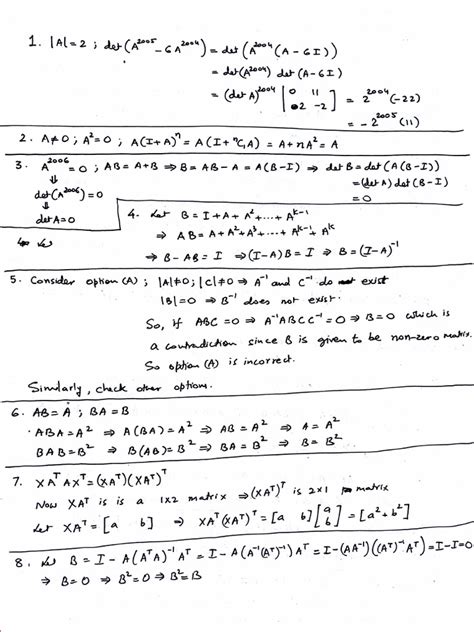 1. |A| = 2 ; det(A²⁰⁰⁵ - 6A²⁰⁰⁴) = det(A²⁰⁰⁴(A - 6I))
= det(A²⁰⁰⁴) det(A - 6I)
= (det A)²⁰⁰⁴ | 0 11 | = 2²⁰⁰⁴(-22)
| 2 -2 | = -2²⁰⁰⁵(11)
2. A≠0 ; A²=0 ; A(I+A)ⁿ = A(I+ⁿC₁A) = A+nA² = A
3. A²⁰⁰⁶ = 0 ; AB = A+B ⇒ B = AB - A = A(B-I) ⇒ det B = det(A(B-I))
⇓ = (det A) det(B-I)
det(A²⁰⁰⁶) = 0 = 0
⇓
det A = 0
4. Let B = I + A + A² + ... + Aᵏ⁻¹
⇒ AB = A + A² + A³ + ... + Aᵏ⁻¹ + Aᵏ
⇒ B - AB = I ⇒ (I-A)B = I ⇒ B = (I-A)⁻¹
5. Consider option (A) ; |A|≠0 ; |C|≠0 ⇒ A⁻¹ and C⁻¹ do exist
|B| = 0 ⇒ B⁻¹ does not exist.
So, if ABC = 0 ⇒ A⁻¹ABCC⁻¹ = 0 ⇒ B = 0 which is
a contradiction since B is given to be non-zero matrix.
So option (A) is incorrect.
Similarly, check other options.
6. AB = A ; BA = B
ABA = A² ⇒ A(BA) = A² ⇒ AB = A² ⇒ A = A²
BAB = B² ⇒ B(AB) = B² ⇒ BA = B² ⇒ B = B²
7. XAᵀAXᵀ = (XAᵀ)(XAᵀ)ᵀ
Now XAᵀ is is a 1x2 matrix ⇒ (XAᵀ)ᵀ is 2x1 matrix
Let XAᵀ = [a b] ⇒ XAᵀ(XAᵀ)ᵀ = [a b][a b] = [a²+b²]
8. Let B = I - A(AᵀA)⁻¹Aᵀ = I - A(A⁻¹(Aᵀ)⁻¹)Aᵀ = I - (AA⁻¹)((Aᵀ)⁻¹Aᵀ) = I - I = 0
⇒ B = 0 ⇒ B² = 0 ⇒ B² = B